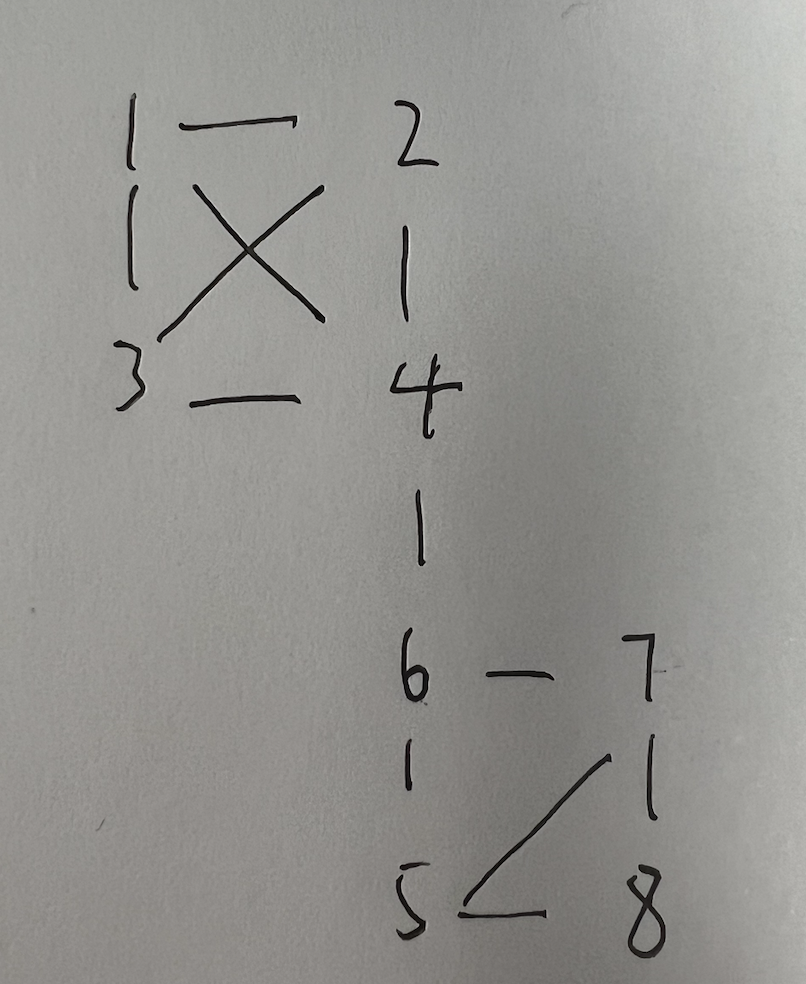 1 2
3 4
6 7
5 8